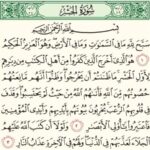 سُورَةُ الحَشْرِ
بِسْمِ اللَّهِ الرَّحْمَٰنِ الرَّحِيمِ
سَبَّحَ لِلَّهِ مَا فِي السَّمَٰوَٰتِ وَمَا فِي الْأَرْضِ وَهُوَ الْعَزِيزُ الْحَكِيمُ
١ هُوَ الَّذِي أَخْرَجَ الَّذِينَ كَفَرُوا مِنْ أَهْلِ الْكِتَٰبِ مِن دِيَٰرِهِمْ
لِأَوَّلِ الْحَشْرِ مَا ظَنَنتُمْ أَن يَخْرُجُوا وَظَنُّوا أَنَّهُم مَّانِعَتُهُمْ
حُصُونُهُم مِّنَ اللَّهِ فَأَتَىٰهُمُ اللَّهُ مِنْ حَيْثُ لَمْ يَحْتَسِبُوا وَقَذَفَ
فِي قُلُوبِهِمُ الرُّعْبَ يُخْرِبُونَ بُيُوتَهُم بِأَيْدِيهِمْ وَأَيْدِي الْمُؤْمِنِينَ
فَاعْتَبِرُوا يَٰأُولِي الْأَبْصَٰرِ ٢ وَلَوْلَا أَن كَتَبَ اللَّهُ عَلَيْهِمُ
الْجَلَاءَ لَعَذَّبَهُمْ فِي الدُّنْيَا وَلَهُمْ فِي الْآخِرَةِ عَذَابُ النَّارِ ٣